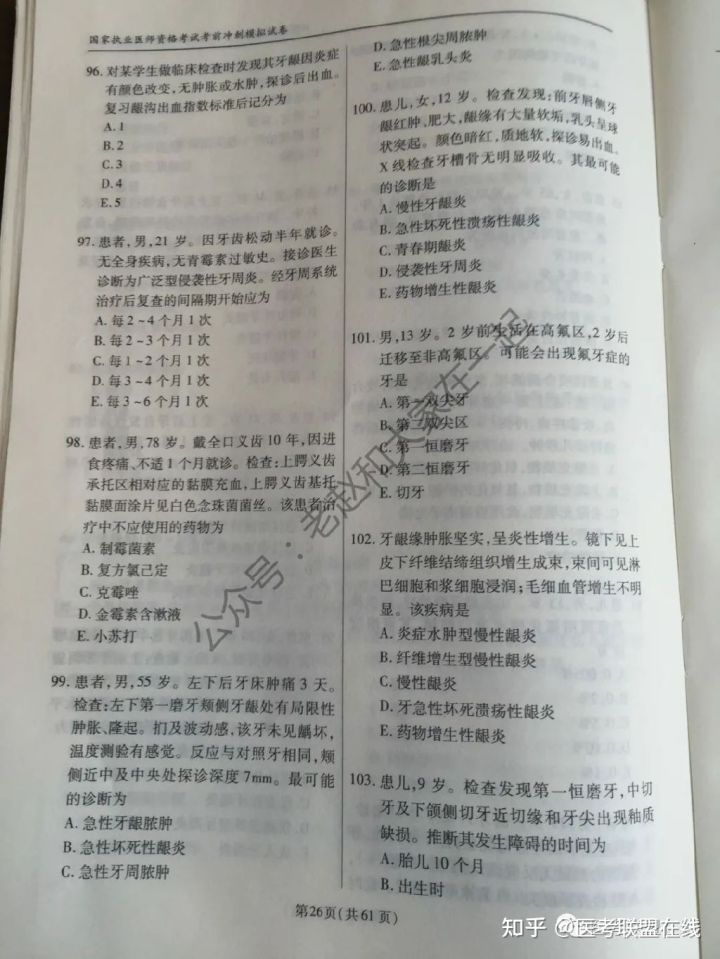 国家执业医师资格考试考前冲刺模拟试卷
96. 对某学生做临床检查时发现其牙龈因炎症
有颜色改变，无肿胀或水肿，探诊后出血。
复习龈沟出血指数标准后记分为
A. 1
B. 2
C. 3
D. 4
E. 5
97. 患者，男，21 岁。因牙齿松动半年就诊。
无全身疾病，无青霉素过敏史。接诊医生
诊断为广泛型侵袭性牙周炎。经牙周系统
治疗后复查的间隔期开始应为
A. 每 2～4 个月 1 次
B. 每 2～3 个月 1 次
C. 每 1～2 个月 1 次
D. 每 3～4 个月 1 次
E. 每 3～6 个月 1 次
98. 患者，男，78 岁。戴全口义齿 10 年，因进
食疼痛、不适 1 个月就诊。检查：上腭义齿
承托区相对应的黏膜充血，上腭义齿基托
黏膜面涂片见白色念珠菌菌丝。该患者治
疗中不应使用的药物为
A. 制霉菌素
B. 复方氯己定
C. 克霉唑
D. 金霉素含漱液
E. 小苏打
99. 患者，男，55 岁。左下后牙床肿痛 3 天。
检查：左下第一磨牙颊侧牙龈处有局限性
肿胀、隆起。扪及波动感，该牙未见龋坏，
温度测验有感觉。反应与对照牙相同，颊
侧近中及中央处探诊深度 7mm。最可能
的诊断为
A. 急性牙龈脓肿
B. 急性坏死性龈炎
C. 急性牙周脓肿
D. 急性根尖周脓肿
E. 急性龈乳头炎
100. 患儿，女，12 岁。检查发现：前牙唇侧牙
龈红肿、肥大，龈缘有大量软垢，乳头呈球
状突起。颜色暗红，质地软，探诊易出血。
X 线检查牙槽骨无明显吸收。其最可能
的诊断是
A. 慢性牙龈炎
B. 急性坏死性溃疡性龈炎
C. 青春期龈炎
D. 侵袭性牙周炎
E. 药物增生性龈炎
101. 男，13 岁。2 岁前生活在高氟区，2 岁后
迁移至非高氟区。可能会出现氟牙症的
牙是
A. 第一双尖牙
B. 第二双尖区
C. 第一恒磨牙
D. 第二恒磨牙
E. 切牙
102. 牙龈缘肿胀坚实，呈炎性增生。镜下见上
皮下纤维结缔组织增生成束，束间可见淋
巴细胞和浆细胞浸润；毛细血管增生不明
显。该疾病是
A. 炎症水肿型慢性龈炎
B. 纤维增生型慢性龈炎
C. 慢性龈炎
D. 牙急性坏死溃疡性龈炎
E. 药物增生性龈炎
103. 患儿，9 岁。检查发现第一恒磨牙，中切
牙及下颌侧切牙近切缘和牙尖出现釉质
缺损。推断其发生障碍的时间为
A. 胎儿 10 个月
B. 出生时
第26页(共61页)
公众号：老赵和大家在一起
知乎 @医考联盟在线